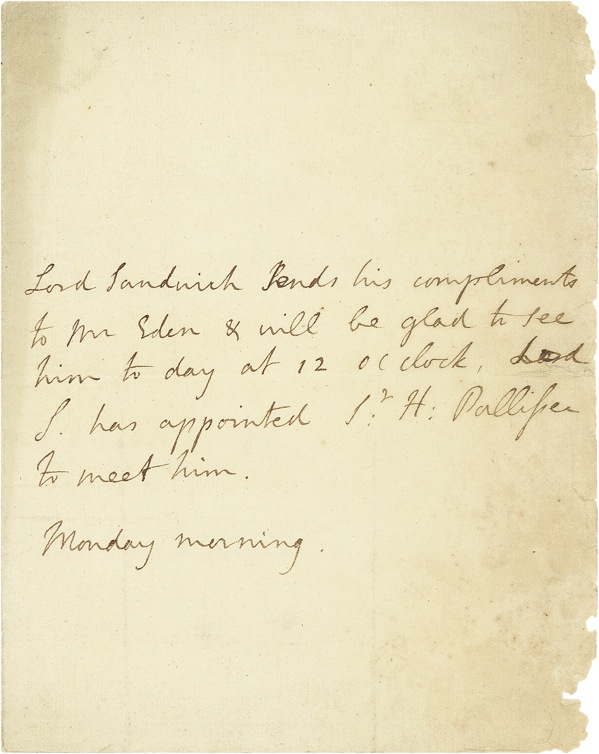 Lord Sandwich sends his compliments
to Mr Eden & will be glad to see
him to day at 12 o Clock, Lord
S. has appointed Sr. H: Palliser
to meet him.
Monday morning.